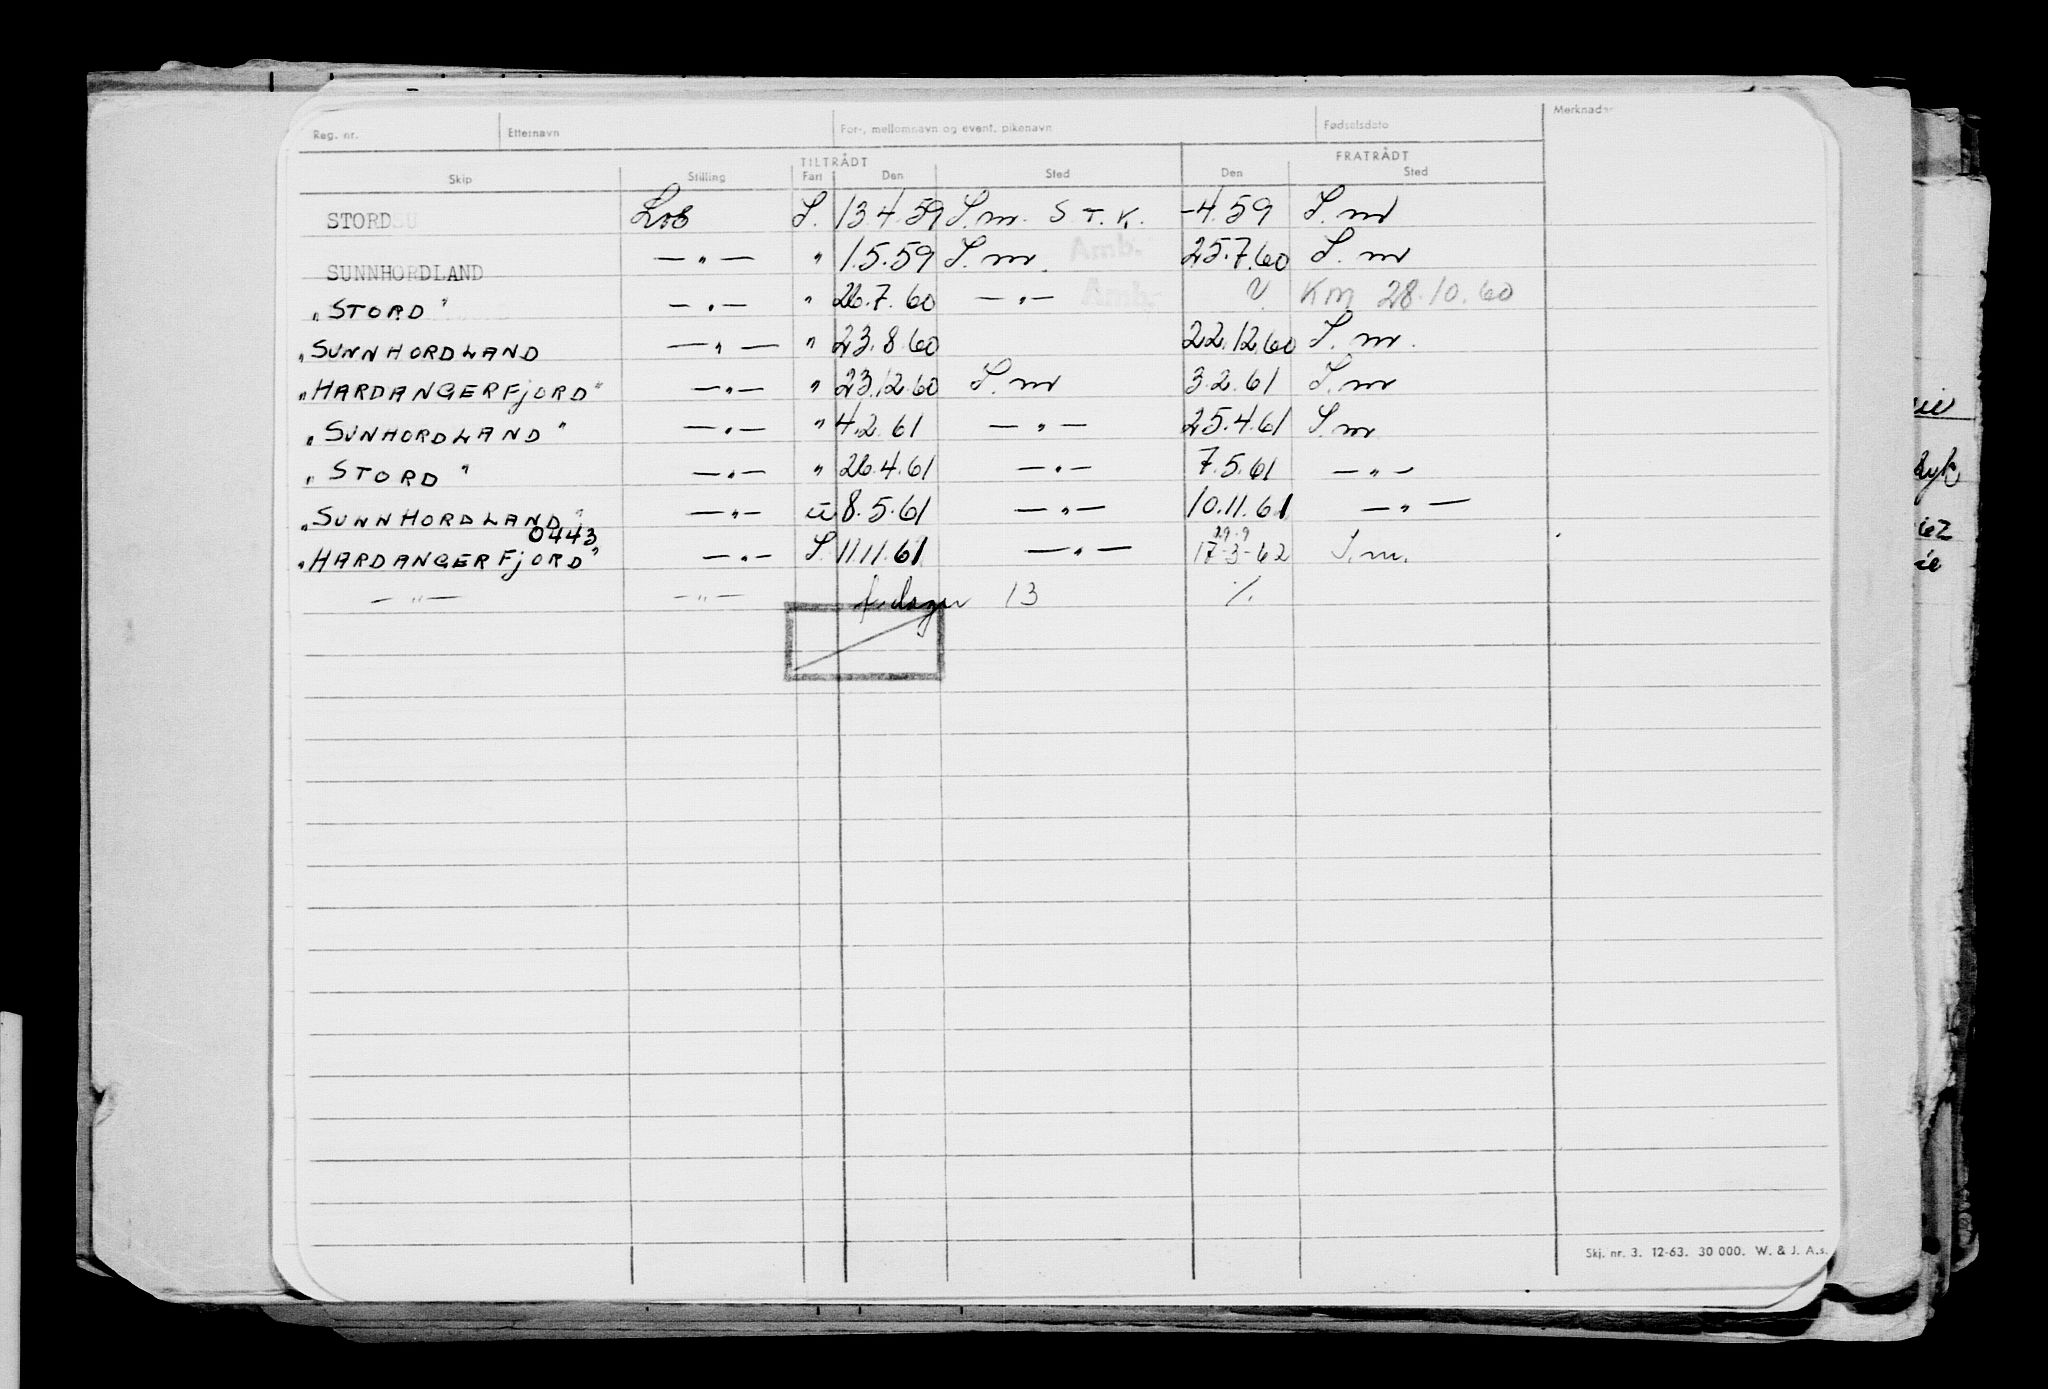 Reg. nr. Etternavn For-, mellomnavn og event. pikenavn Fødselsdato Merknader
TILTRÅDT FRATRÅDT
Skip Stilling Fart Den Sted Den Sted
STORD Los S. 13.4.59 S.m. S.T.K. -4.59 S.m
SUNNHORDLAND —„— „ 1.5.59 S.m. Amb. 25.7.60 S.m
„STORD" —„— „ 26.7.60 —„— Amb. V KM 28.10.60
„SUNNHORDLAND —„— „ 23.8.60 22.12.60 S.m.
„HARDANGERFJORD" —„— „ 23.12.60 S.m 3.2.61 S.m
„SUNHORDLAND" —„— „ 4.2.61 —„— 25.4.61 S.m
„STORD" —„— „ 26.4.61 —„— 7.5.61 —„—
„SUNNHORDLAND" —„— u 8.5.61 —„— 10.11.61 —„—
0443 29.9
„HARDANGERFJORD" —„— S. 11.11.61 —„— 17-3-62 S.m.
—„— —„— f.dager 13 %.
Skj. nr. 3. 12-63. 30 000. W. & J. A.s.
62